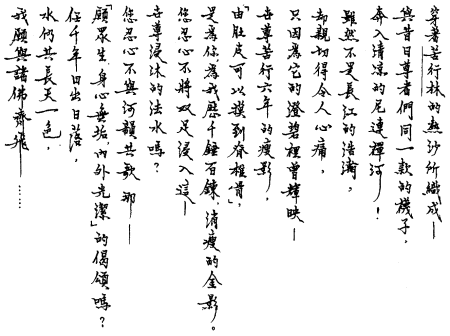 穿著苦行林的熱沙所織成—
與昔日尊者們同一款的襪子,
奔入清凉的尼連禪河!
雖然不是長江的浩瀚,
却親切得令人心痛,
只因為它的澄碧裡曾輝映—
世尊苦行六年的瘦影,
由「肚皮可以摸到脊椎骨」,
是為你為我歷千錘百鍊,消瘦的金影。
您忍心不將双足浸入這—
世尊浸沐的法水嗎?
您忍心不與河韻共歌那—
「願眾生身心無垢,內外光潔」的偈頌嗎?
任千年日出日落,
水仍共長天一色,
我願與諸佛齊飛……